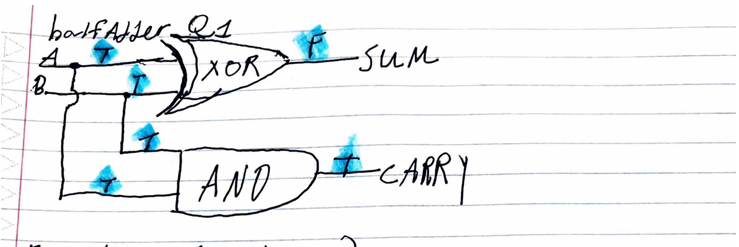 halfAdder Q1
A T XOR F SUM
B T
T
T AND T CARRY